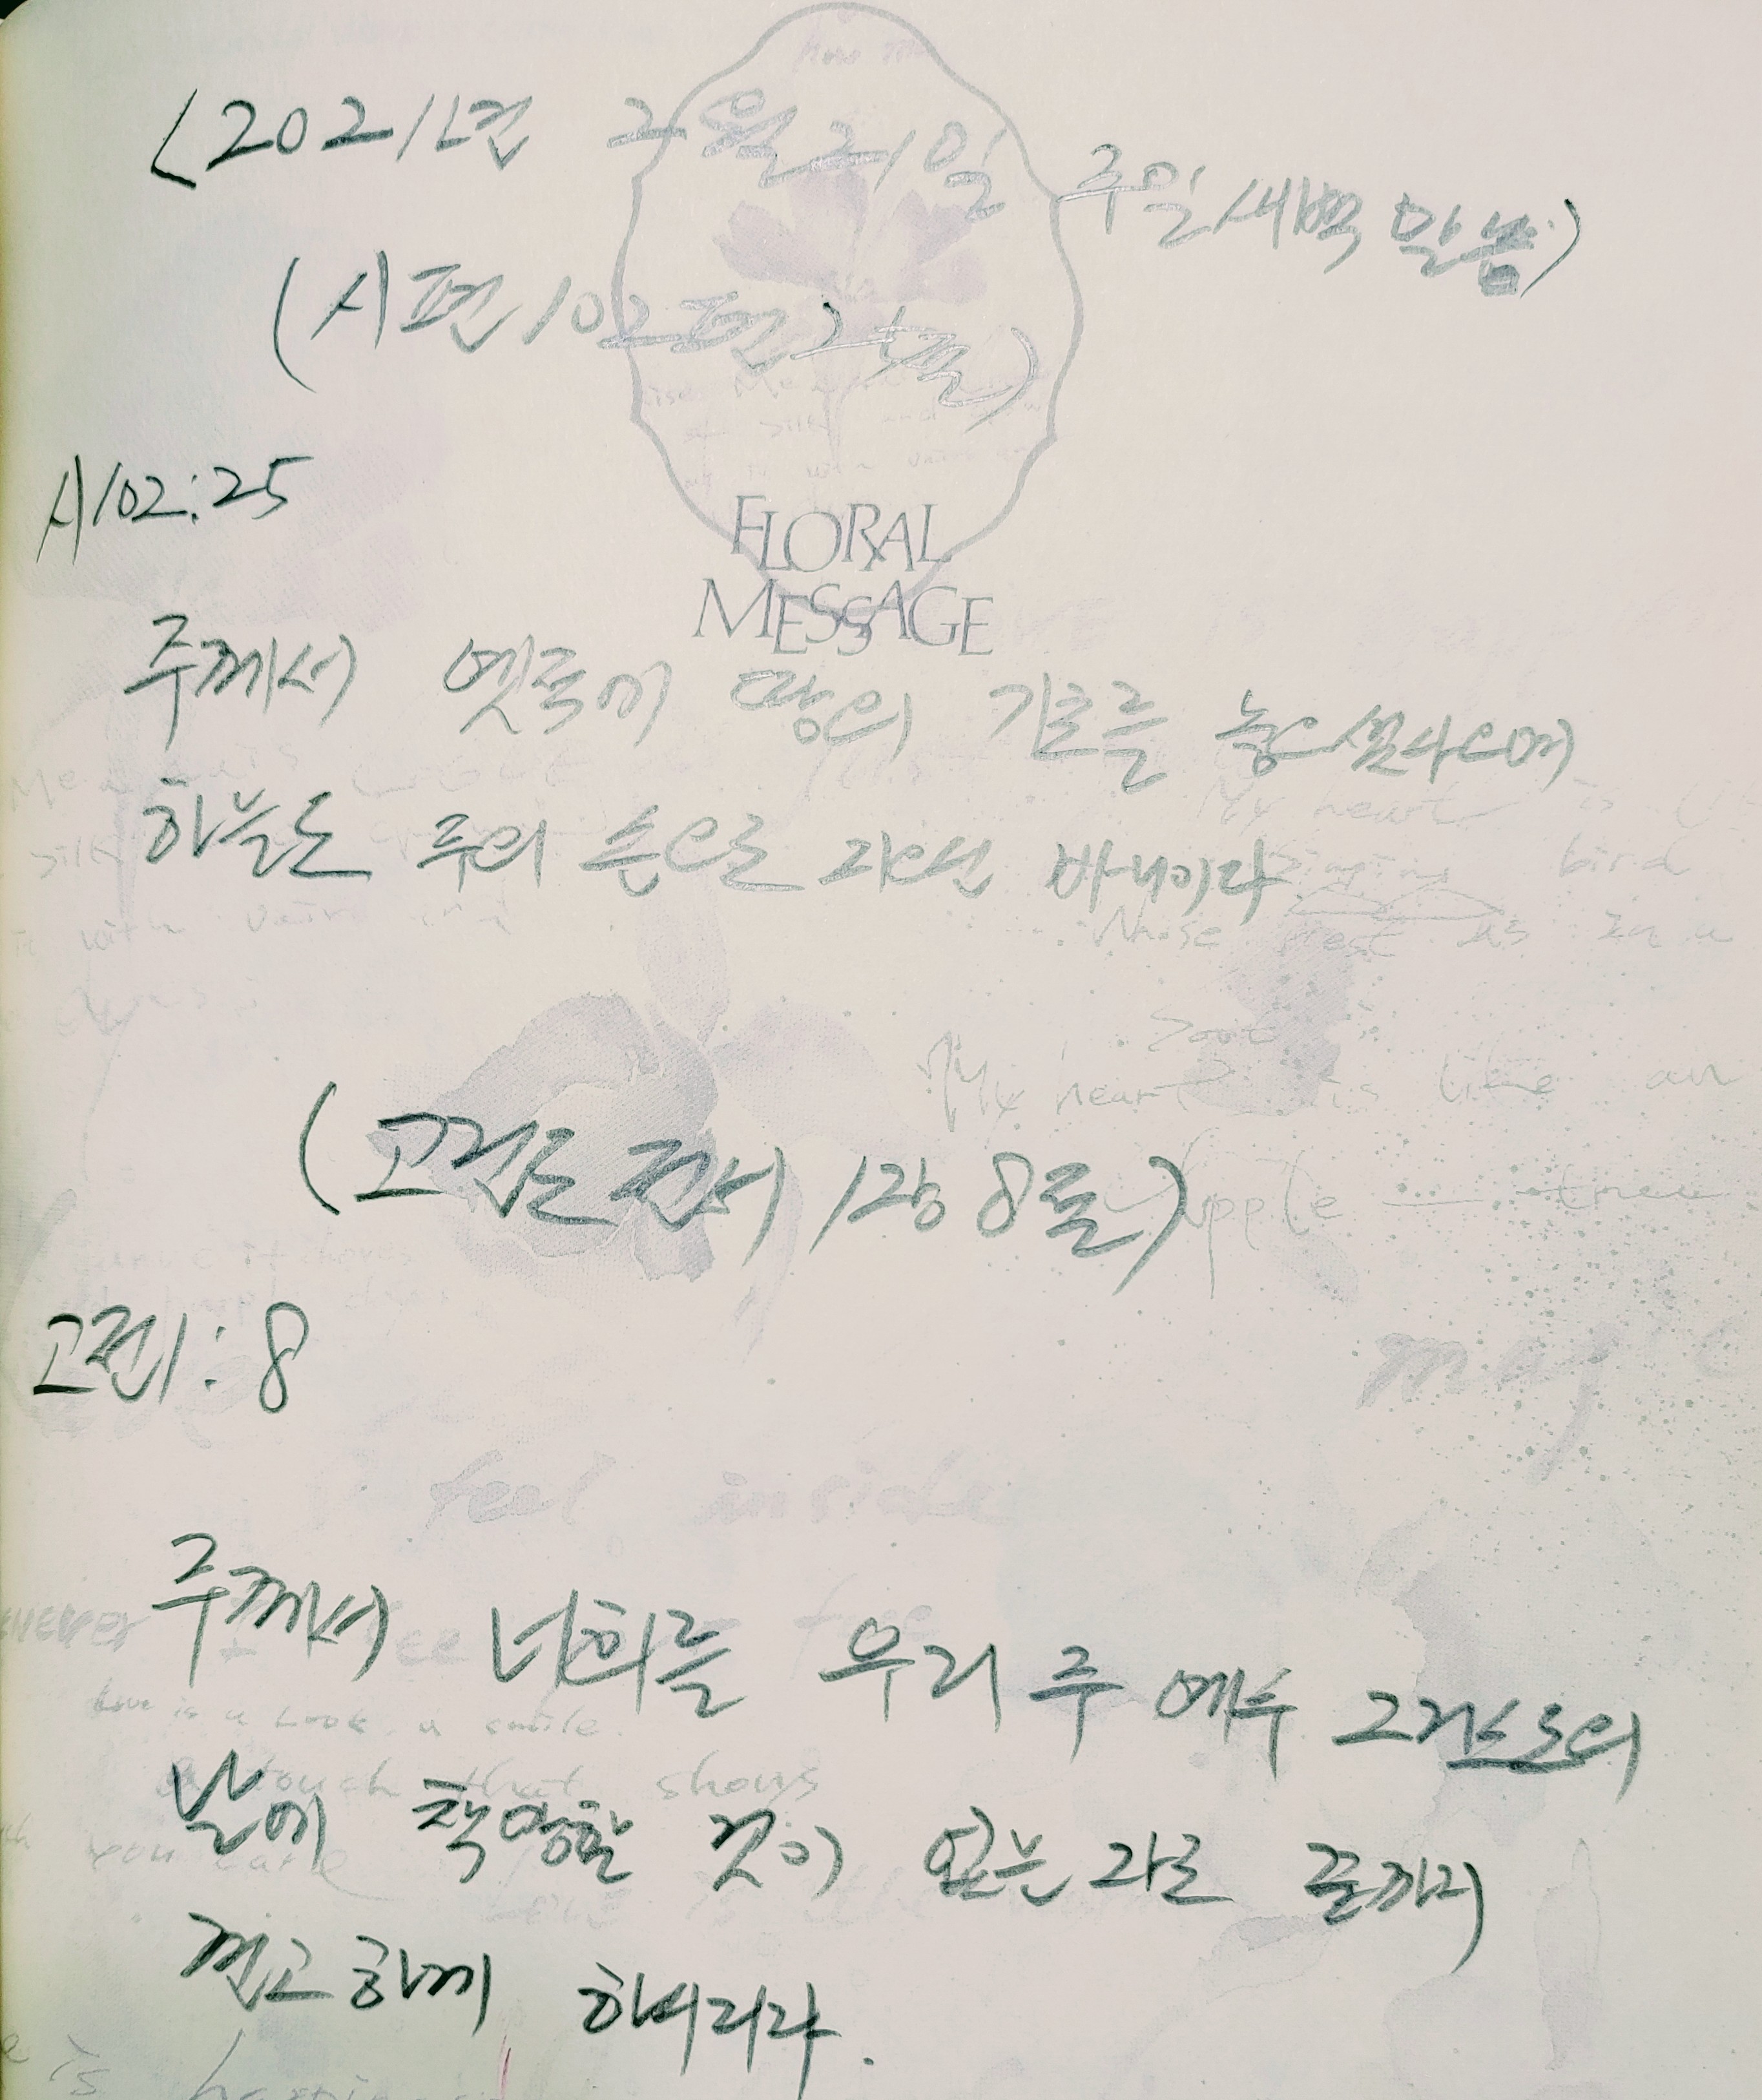 <2021년 2월 21일 주일/새벽 말씀)
(시편 102편 25절)
시102:25
FLORAL
MESSAGE
주께서 옛적에 땅의 기초를 놓으셨사오며
하늘도 주의 손으로 지으신 바니이다
My heart is
singing bird
Whose nest is in a
My heart is like an
apple tree
(고린도전서 1장 8절)
고전1:8
may
feel inside
주께서 너희를 우리 주 예수 그리스도의
Love is a look a smile
날에 책망할 것이 없는 자로 끝까지
a touch that shows
you care
견고하게 하시리라.